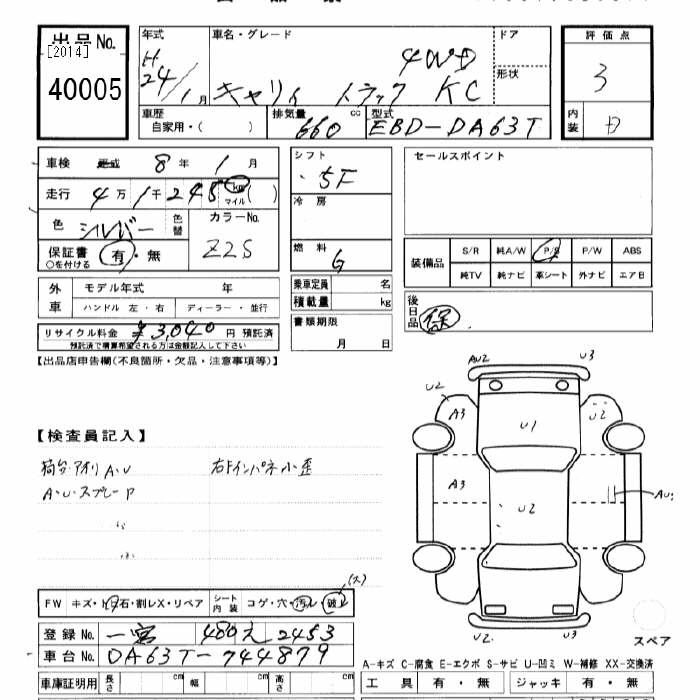 出品No.
[2014]
40005
年式
H
24/1月
車名・グレード
4WD
キャリィ トラック KC
ドア
形状
評価点
3
内装
D
車歴
自家用・( )
排気量
660 cc
型式
EBD-DA63T
車検 平成 8年 1月
走行 4万 1千 248 km マイル ( )
色 シルバー 色替
カラーNo.
Z2S
保証書 有・無
○を付ける
外車
モデル年式 年
ハンドル 左・右 ディーラー・並行
リサイクル料金 ¥3,040 円 預託済
預託済で精算希望される方は金額記入して下さい
シフト
・5F
冷房
燃料
G
乗車定員 名
積載量 kg
書類期限
月 日
セールスポイント
装備品
S/R 純A/W P/S P/W ABS
純TV 純ナビ 革シート 外ナビ エアB
後日品
保
【出品店申告欄(不良箇所・欠品・注意事項等)】
【検査員記入】
荷台・アオリ A・U 右下インパネ小歪
A・U・スプレーP
AU2 U3
U2 A3 U1 U2
A3 U2 AU
U2 U3
スペア
FW キズ・ト石・割レX・リペア シート内装 コゲ・穴・汚レ・破レ
(大)
登録No. 一宮 480 え 2453
車台No. DA63T-744879
車庫証明用 長さ cm 幅 cm 高さ cm
A-キズ C-腐食 E-エクボ S-サビ U-凹ミ W-補修 XX-交換済
工具 有・無 ジャッキ 有・無